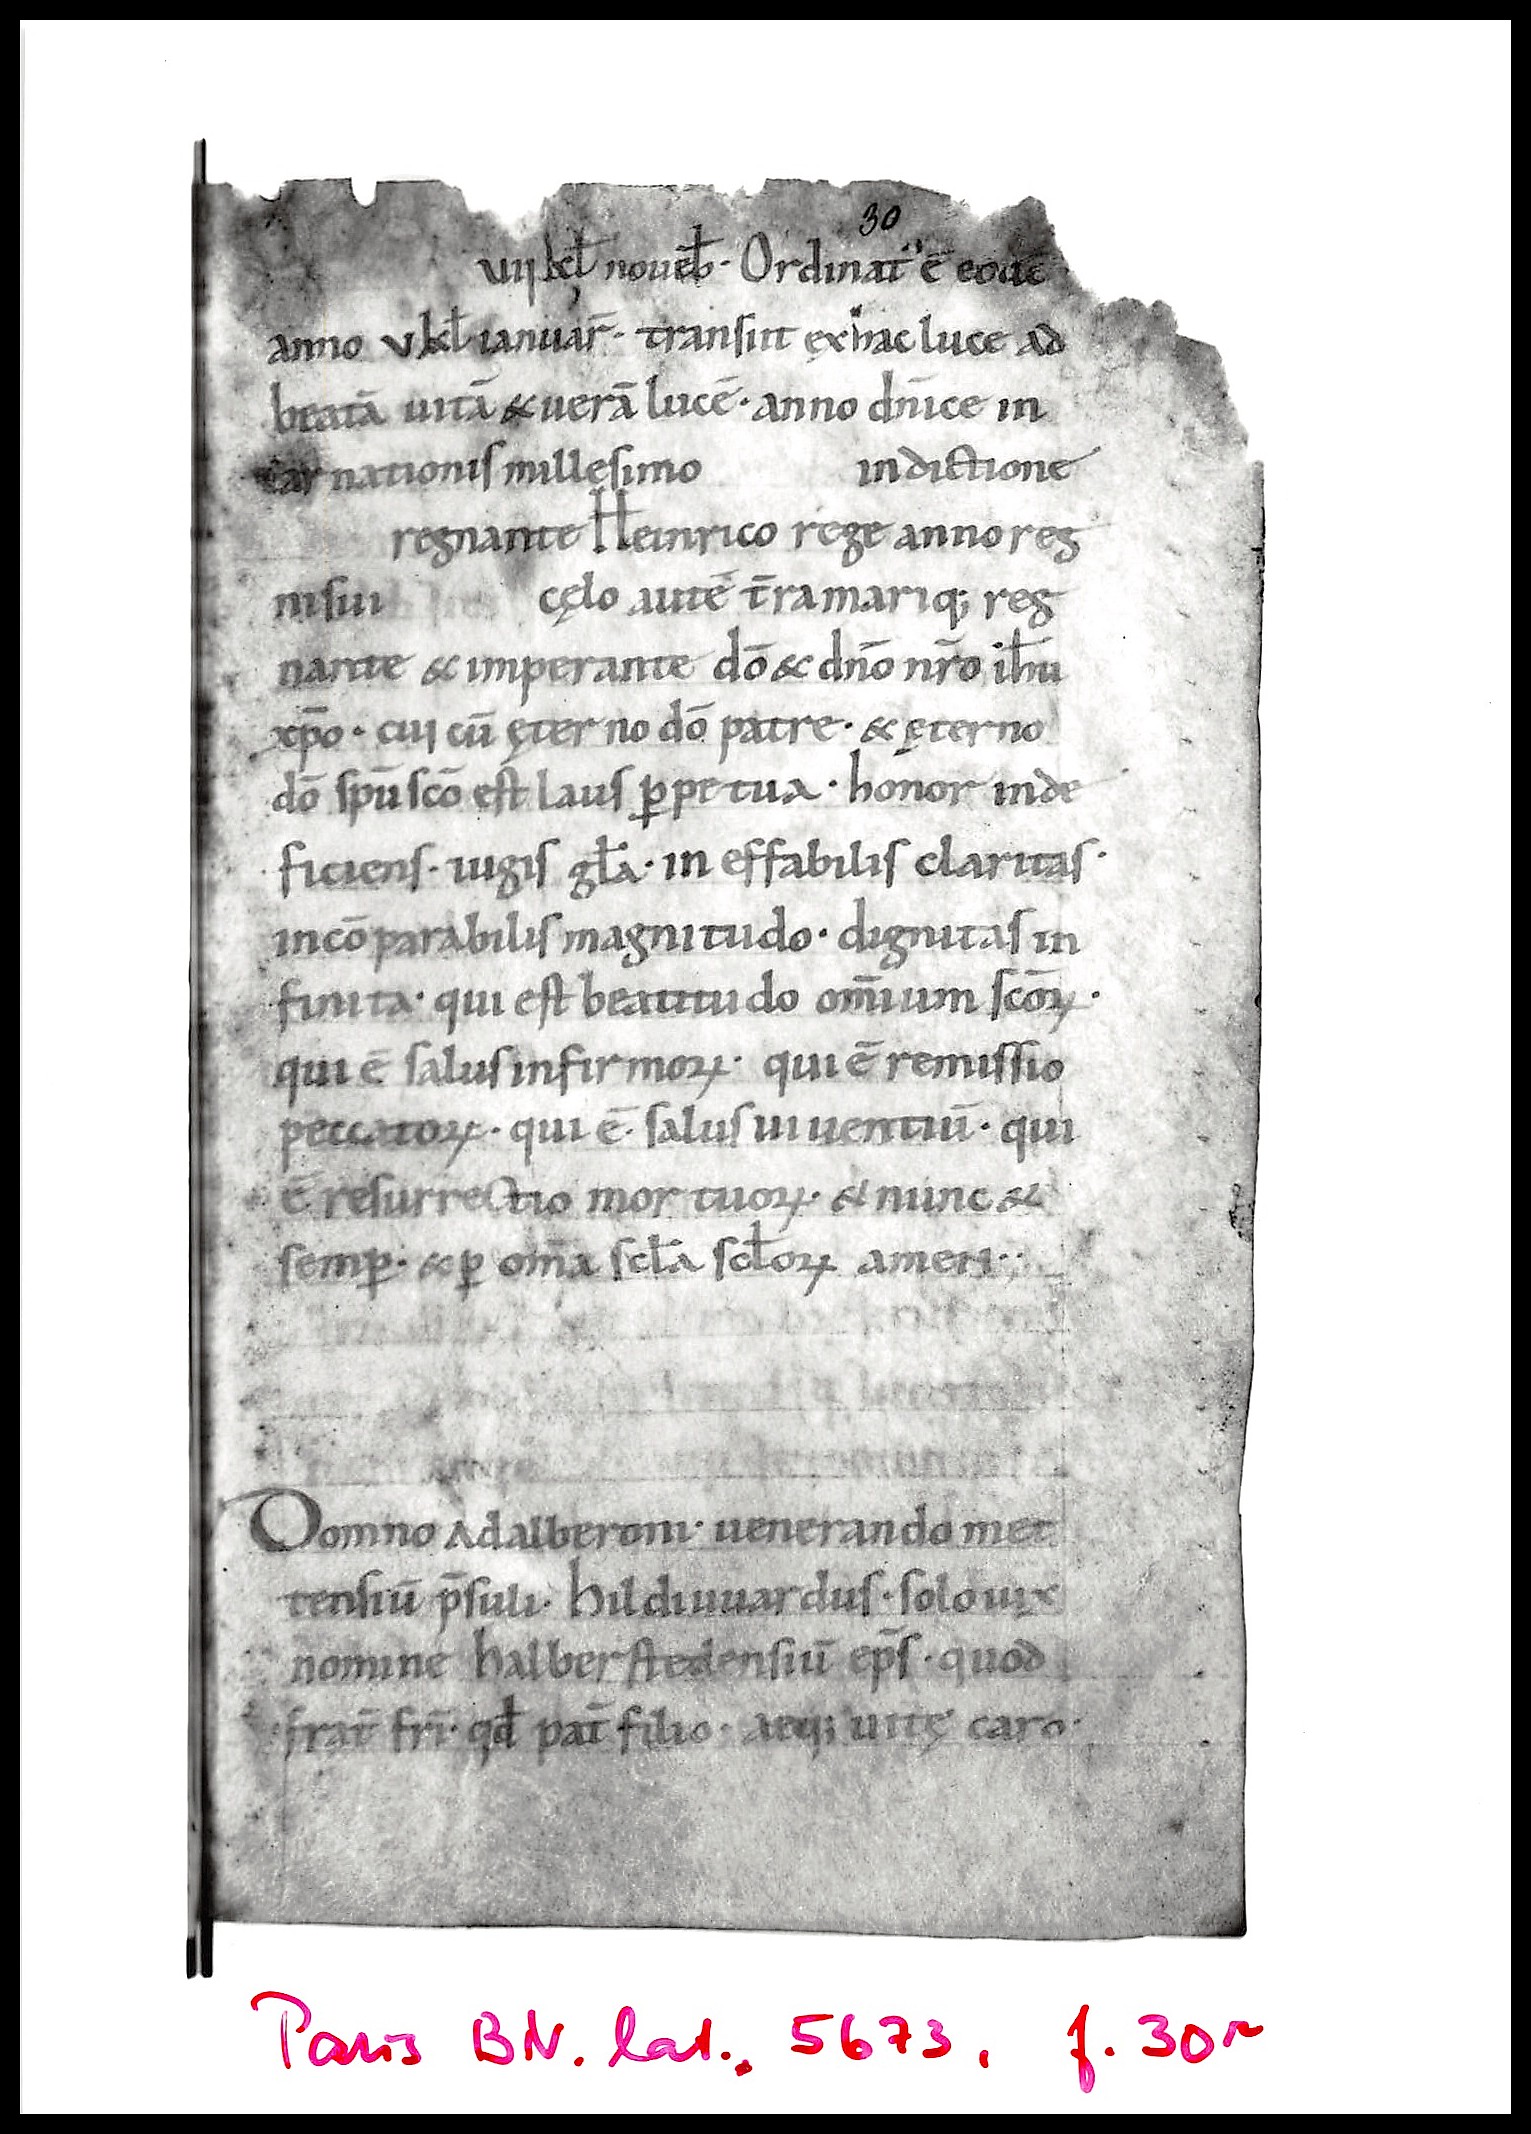 30
vij kl̄ nouēb· Ordinat̄ ē eodē
anno v kl̄ ianuar̄· transiit ex hac luce ad
beatā uitā & uerā lucē· anno dn̄ice in
carnationis millesimo indictione
regnante Heinrico rege anno reg
ni sui cęlo autē t̄ra mariq; reg
nante & imperante dō & dn̄o nr̄o ih̄u
xp̄o· cui cū ęterno dō patre· & ęterno
dō sp̄u scō est laus ꝑpetua· honor inde
ficiens· iugis gl̄a· in effabilis claritas·
incōparabilis magnitudo· dignitas in
finita· qui est beatitudo om̄ium scōꝝ·
qui ē salus infirmoꝝ· qui ē remissio
peccatoꝝ· qui ē· salus uiuentiū· qui
ē resurrectio mortuoꝝ· & nunc &
semꝑ· & ꝑ om̄a scl̄a scl̄oꝝ amen··
Domno Adalberoni· uenerando met
tensiū p̄suli· hildiuuardus· solo uix
nomine halberstedensiū ep̄s· quod
frat̄ fr̄i· qd̄ pat̄ filio· atq; uitę caro·
Paris BN. lat. 5673, f. 30r